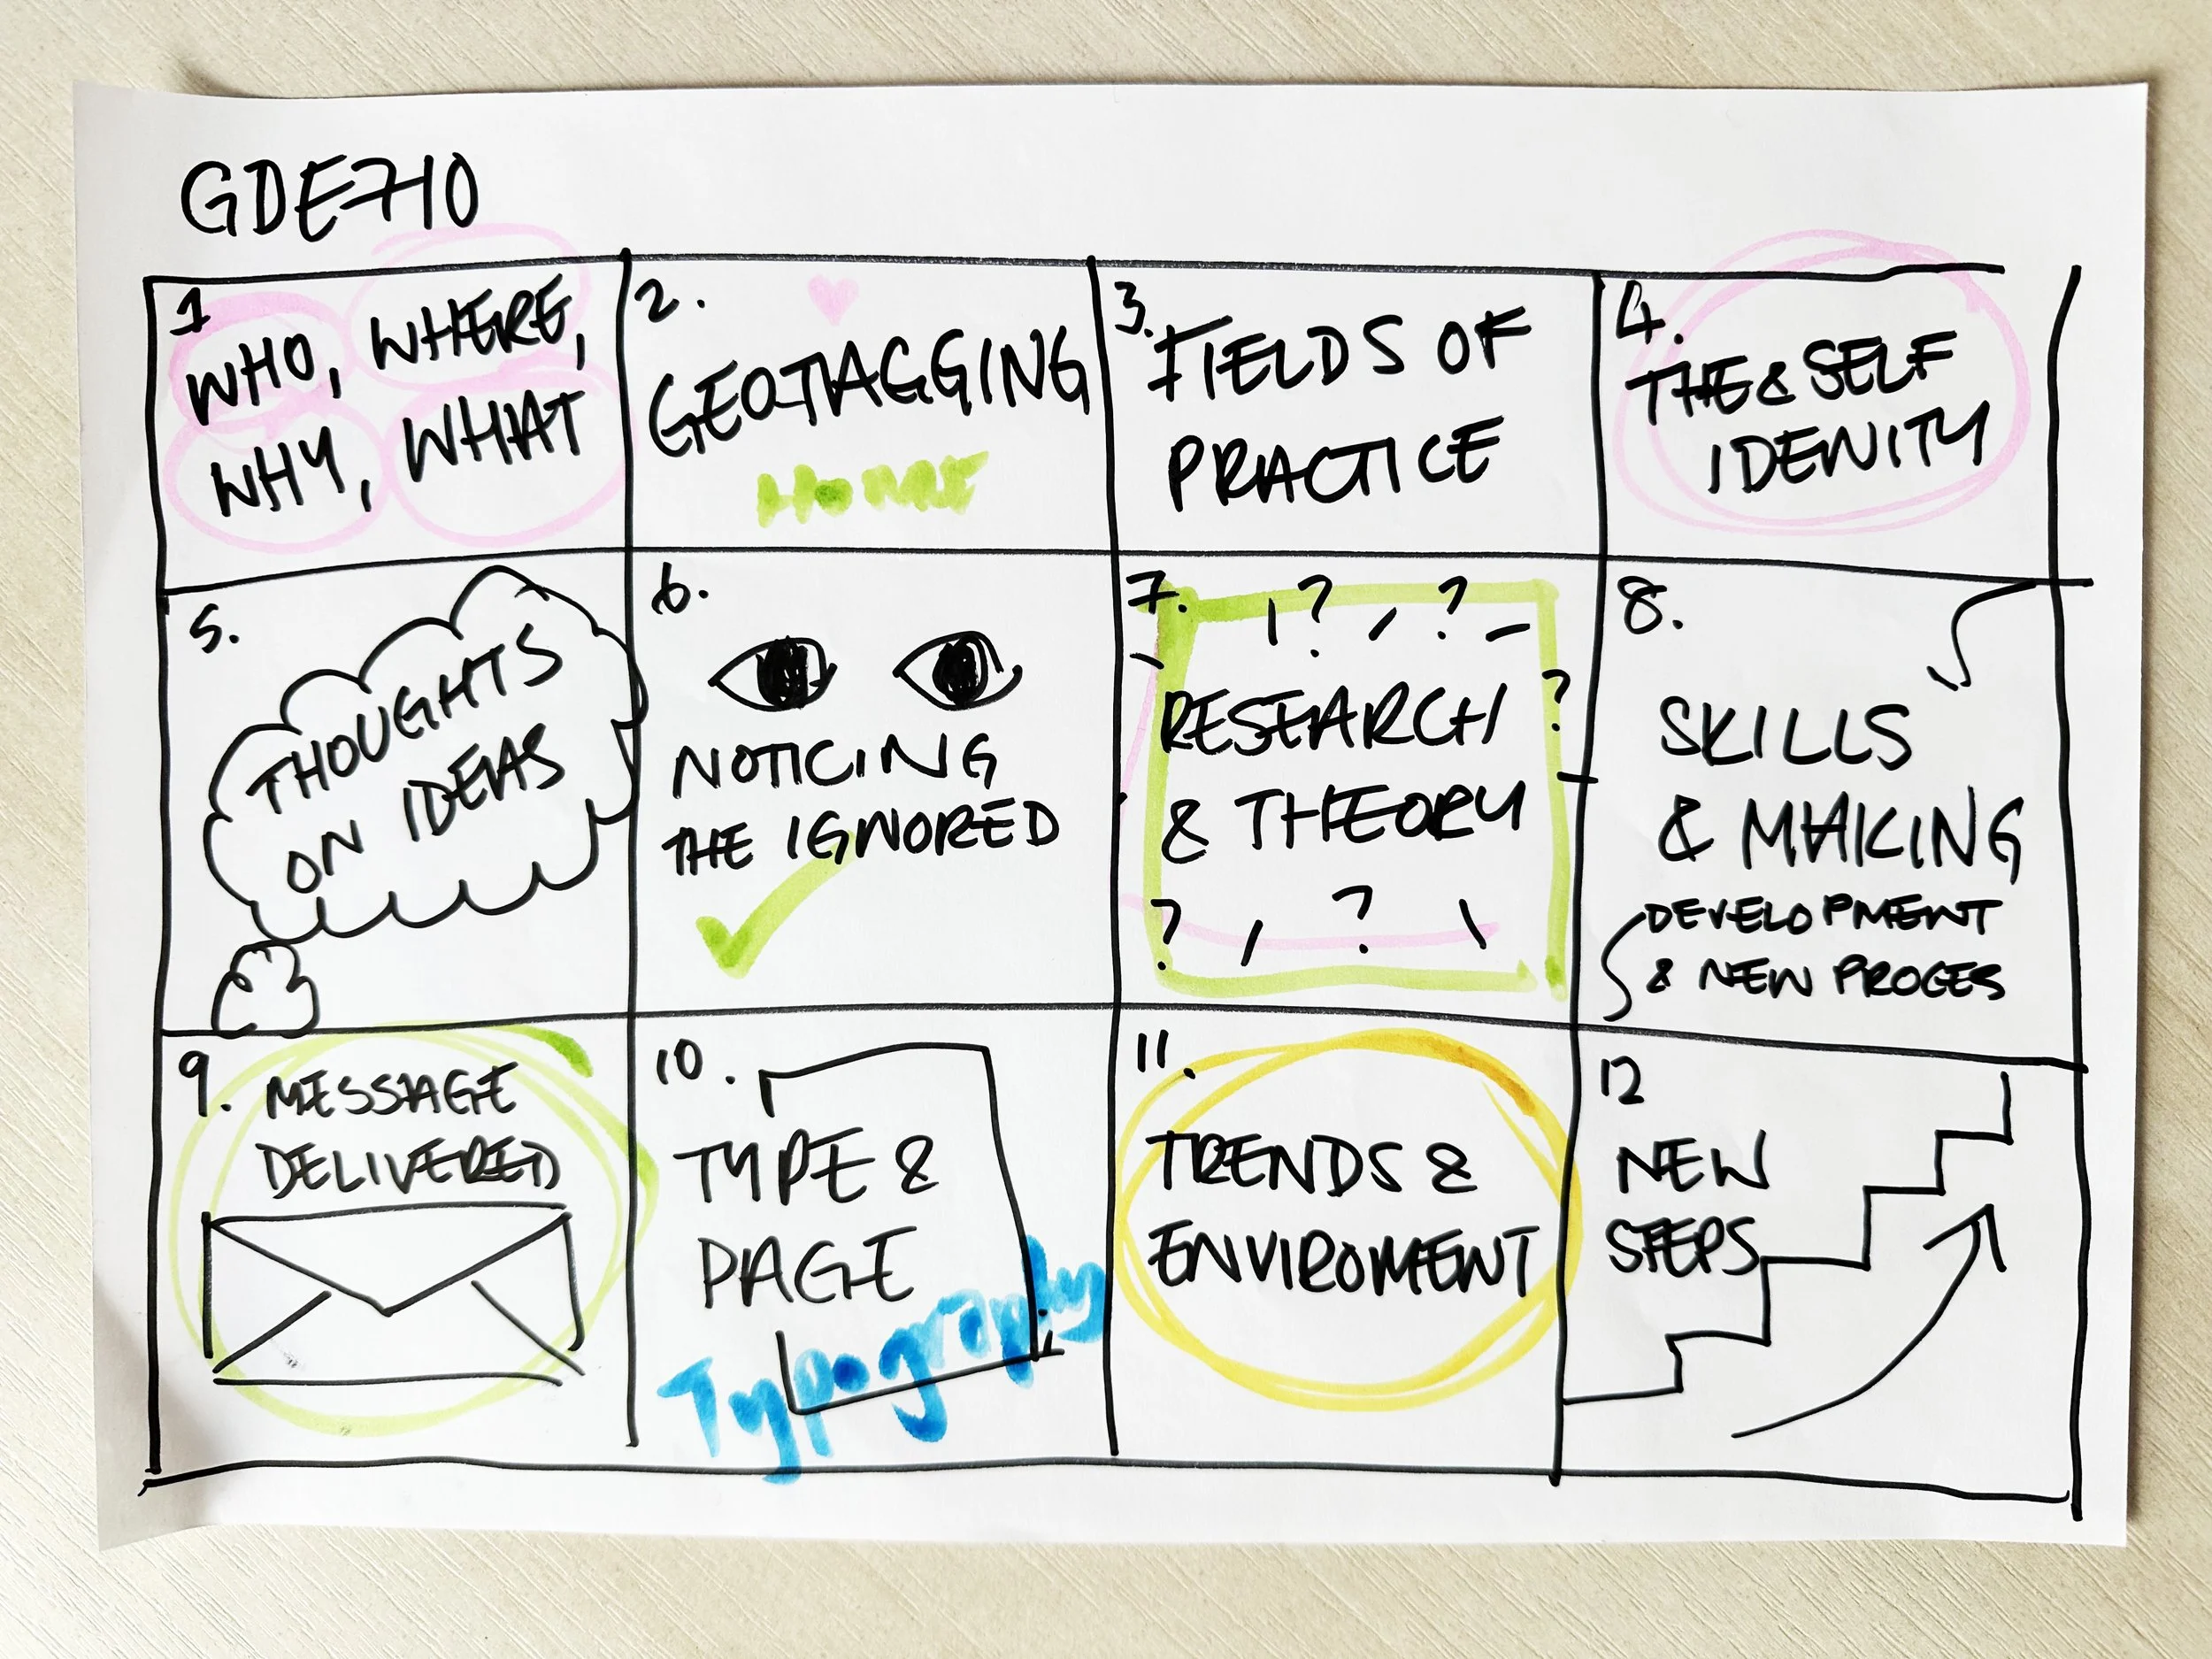 GDE710
1
WHO, WHERE,
WHY, WHAT
2.
GEOTAGGING
HOME
3.
FIELDS OF
PRACTICE
4.
THE & SELF
IDENITY
5.
THOUGHTS
ON IDEAS
6.
NOTICING
THE IGNORED
7.
? ? ?
RESEARCH
& THEORY
? ?
8.
SKILLS
& MAKING
DEVELOPMENT
& NEW PROCES
9.
MESSAGE
DELIVERED
10.
TYPE &
PAGE
Typography
11.
TRENDS &
ENVIROMENT
12
NEW
STEPS